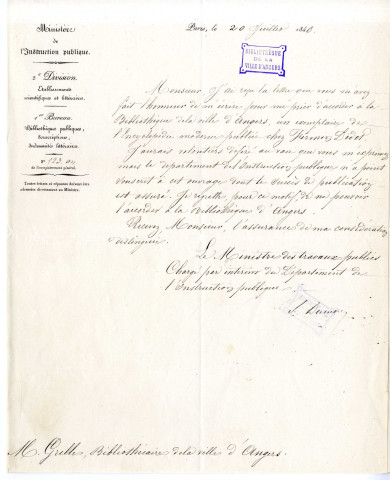 Ministère
de
l'Instruction publique.
2e Division.
Etablissements
scientifiques et littéraires.
1er Bureau.
Bibliothèques publiques,
Souscriptions,
Indemnités littéraires.
No
de l'enregistrement général.
Toutes lettres et réponses doivent être
adressées directement au Ministre.
Paris, le 20 Juillet 184
BIBLIOTHÈQUE
DE LA
VILLE D'ANGERS
Monsieur j'ai reçu la lettre que vous m'avez
fait l'honneur de m'écrire pour me prier d'accorder à la
Bibliothèque de la ville d'Angers, un exemplaire de
l'Encyclopédie moderne publiée chez Firmin Didot
J'aurais volontiers déféré au vœu que vous m'exprimez
mais le département de l'Instruction publique n'a point
souscrit à cet ouvrage dont le succès de publication
est assuré. Je regrette pour ce motif, de ne pouvoir
l'accorder à la Bibliothèque d'Angers.
Recevez, Monsieur, l'assurance de ma considération
distinguée.
Le Ministre des travaux publics
Chargé par intérim du Département de
l'Instruction publique
M. Bibliothécaire de la ville d'Angers.